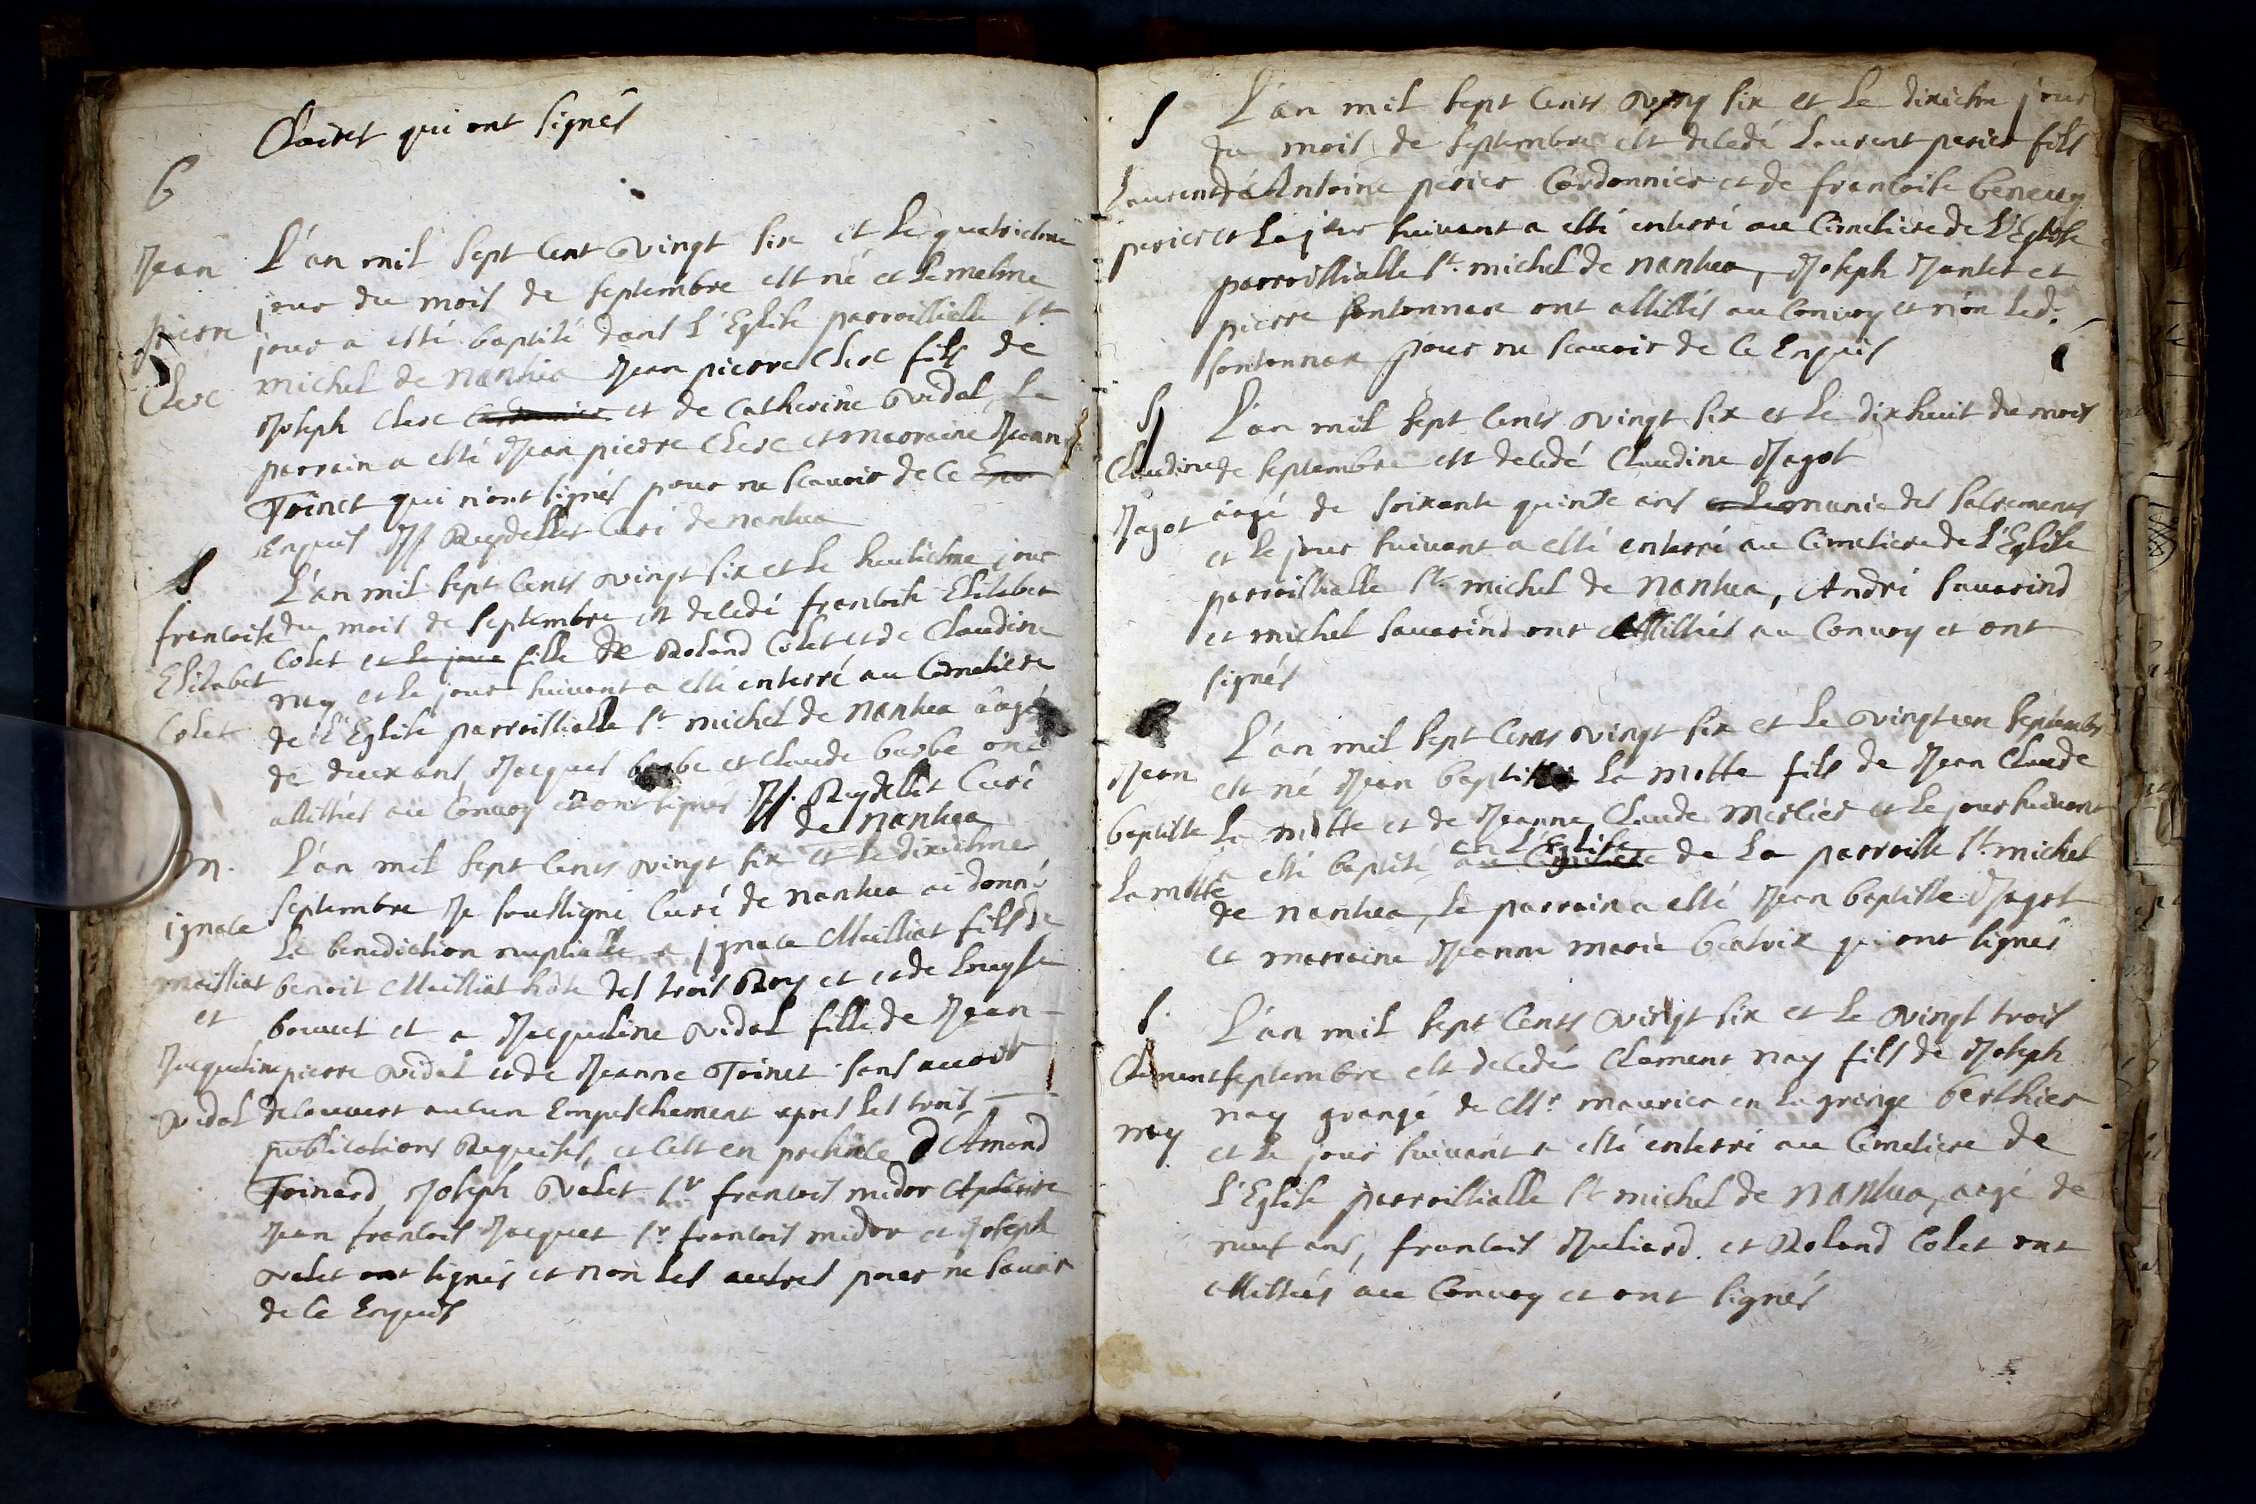 Clairet qui ont signés
6
Jean
pierre
Clerc
L'an mil sept cent vingt six et le quatrieme
jour du mois de septembre est né et le mesme
jour a esté baptisé dans l'Eglise parroissialle st
michel de nantua Jean pierre Clerc fils de
Joseph Clerc et de Catherine vidal, le
parrain a esté Jean pierre Clerc et marraine Jeanne
Toinet qui n'ont signés pour ne scavoir de ce
Enquis JJ Reydellet Curé de nantua
S
francoise
Elisabet
Colet
L'an mil sept cents vingt six et le huitiesme jour
du mois de septembre est decedé francoise Elisabet
Colet et le jour fille de Roland Colet et de Claudine
nay et le jour suivant a esté enterré au Cemetiere
de l'Eglise parroissialle st michel de nantua aagé
de deux ans, Jacques barbe et Claude barbe ont
assistés au Convoy et n'ont signés JJ. Reydellet Curé
de nantua
m.
ignace
mailliat
et
Jacqueline
vidal
L'an mil sept cents vingt six et le dixiesme
septembre Je soussigné Curé de nantua ai donné
la benediction nuptialle a jgnace Mailliat fils de
benoit Mailliat hôte des trois Roy et et de Louyse
bouvet et a Jacqueline vidal fille de Jean
pierre vidal et de Jeanne Toinet sans avoir
decouvert aucun Empeschement apres les trois
publications Requises, et cest en presence d'Amand
Toinard, Joseph valet sr francois midor
Jean francois Jacquet sr francois midor et Joseph
valet ont signés et non les autres pour ne savoir
de ce Enquis
S
Laurent
perier
L'an mil sept cents vingt six et le dixiesme jour
du mois de septembre est decedé Laurent perier fils
d'Antoine perier Cordonnier et de francoise beneug
et le jour suivant a esté enterré au Cimetiere de l'Eglise
parroissialle st. michel de nantua, Joseph Jantet et
pierre sontonnax ont assistés au Convoy et non led.
sontonnax pour ne scavoir de ce Enquis
S
Claudine
Jagot
L'an mil sept cents vingt six et le dixhuit du mois
de septembre est decedé Claudine Jagot
aagé de soixante quinze ans munie des sacrements
et le jour suivant a esté enterré au Cimetiere de l'Eglise
parroissialle st michel de nantua, André savarind
et michel savarind ont assistés au Convoy et ont
signés
Jean
baptiste
La motte
L'an mil sept cents vingt six et le vingt un septembre
est né Jean baptiste La motte fils de Jean Claude
La motte et de Jeanne Claude Merlier et le jour suivant
a esté baptisé au Cimetiere en l'Eglise de la parroisse st. michel
de nantua, le parrain a esté Jean baptiste Jagot
et marraine Jeanne marie beatrix qui ont signés
S.
Clement
nay
L'an mil sept cents vingt six et le vingt trois
septembre est decedé Clement nay fils de Joseph
nay grangé de Mr. maurier en la grange berthier
et le jour suivant a esté enterré au Cimetiere de
l'Eglise parroissialle st michel de nantua, aagé de
neuf ans, francois Juliard et Roland Colet ont
assistés au Convoy et ont signés